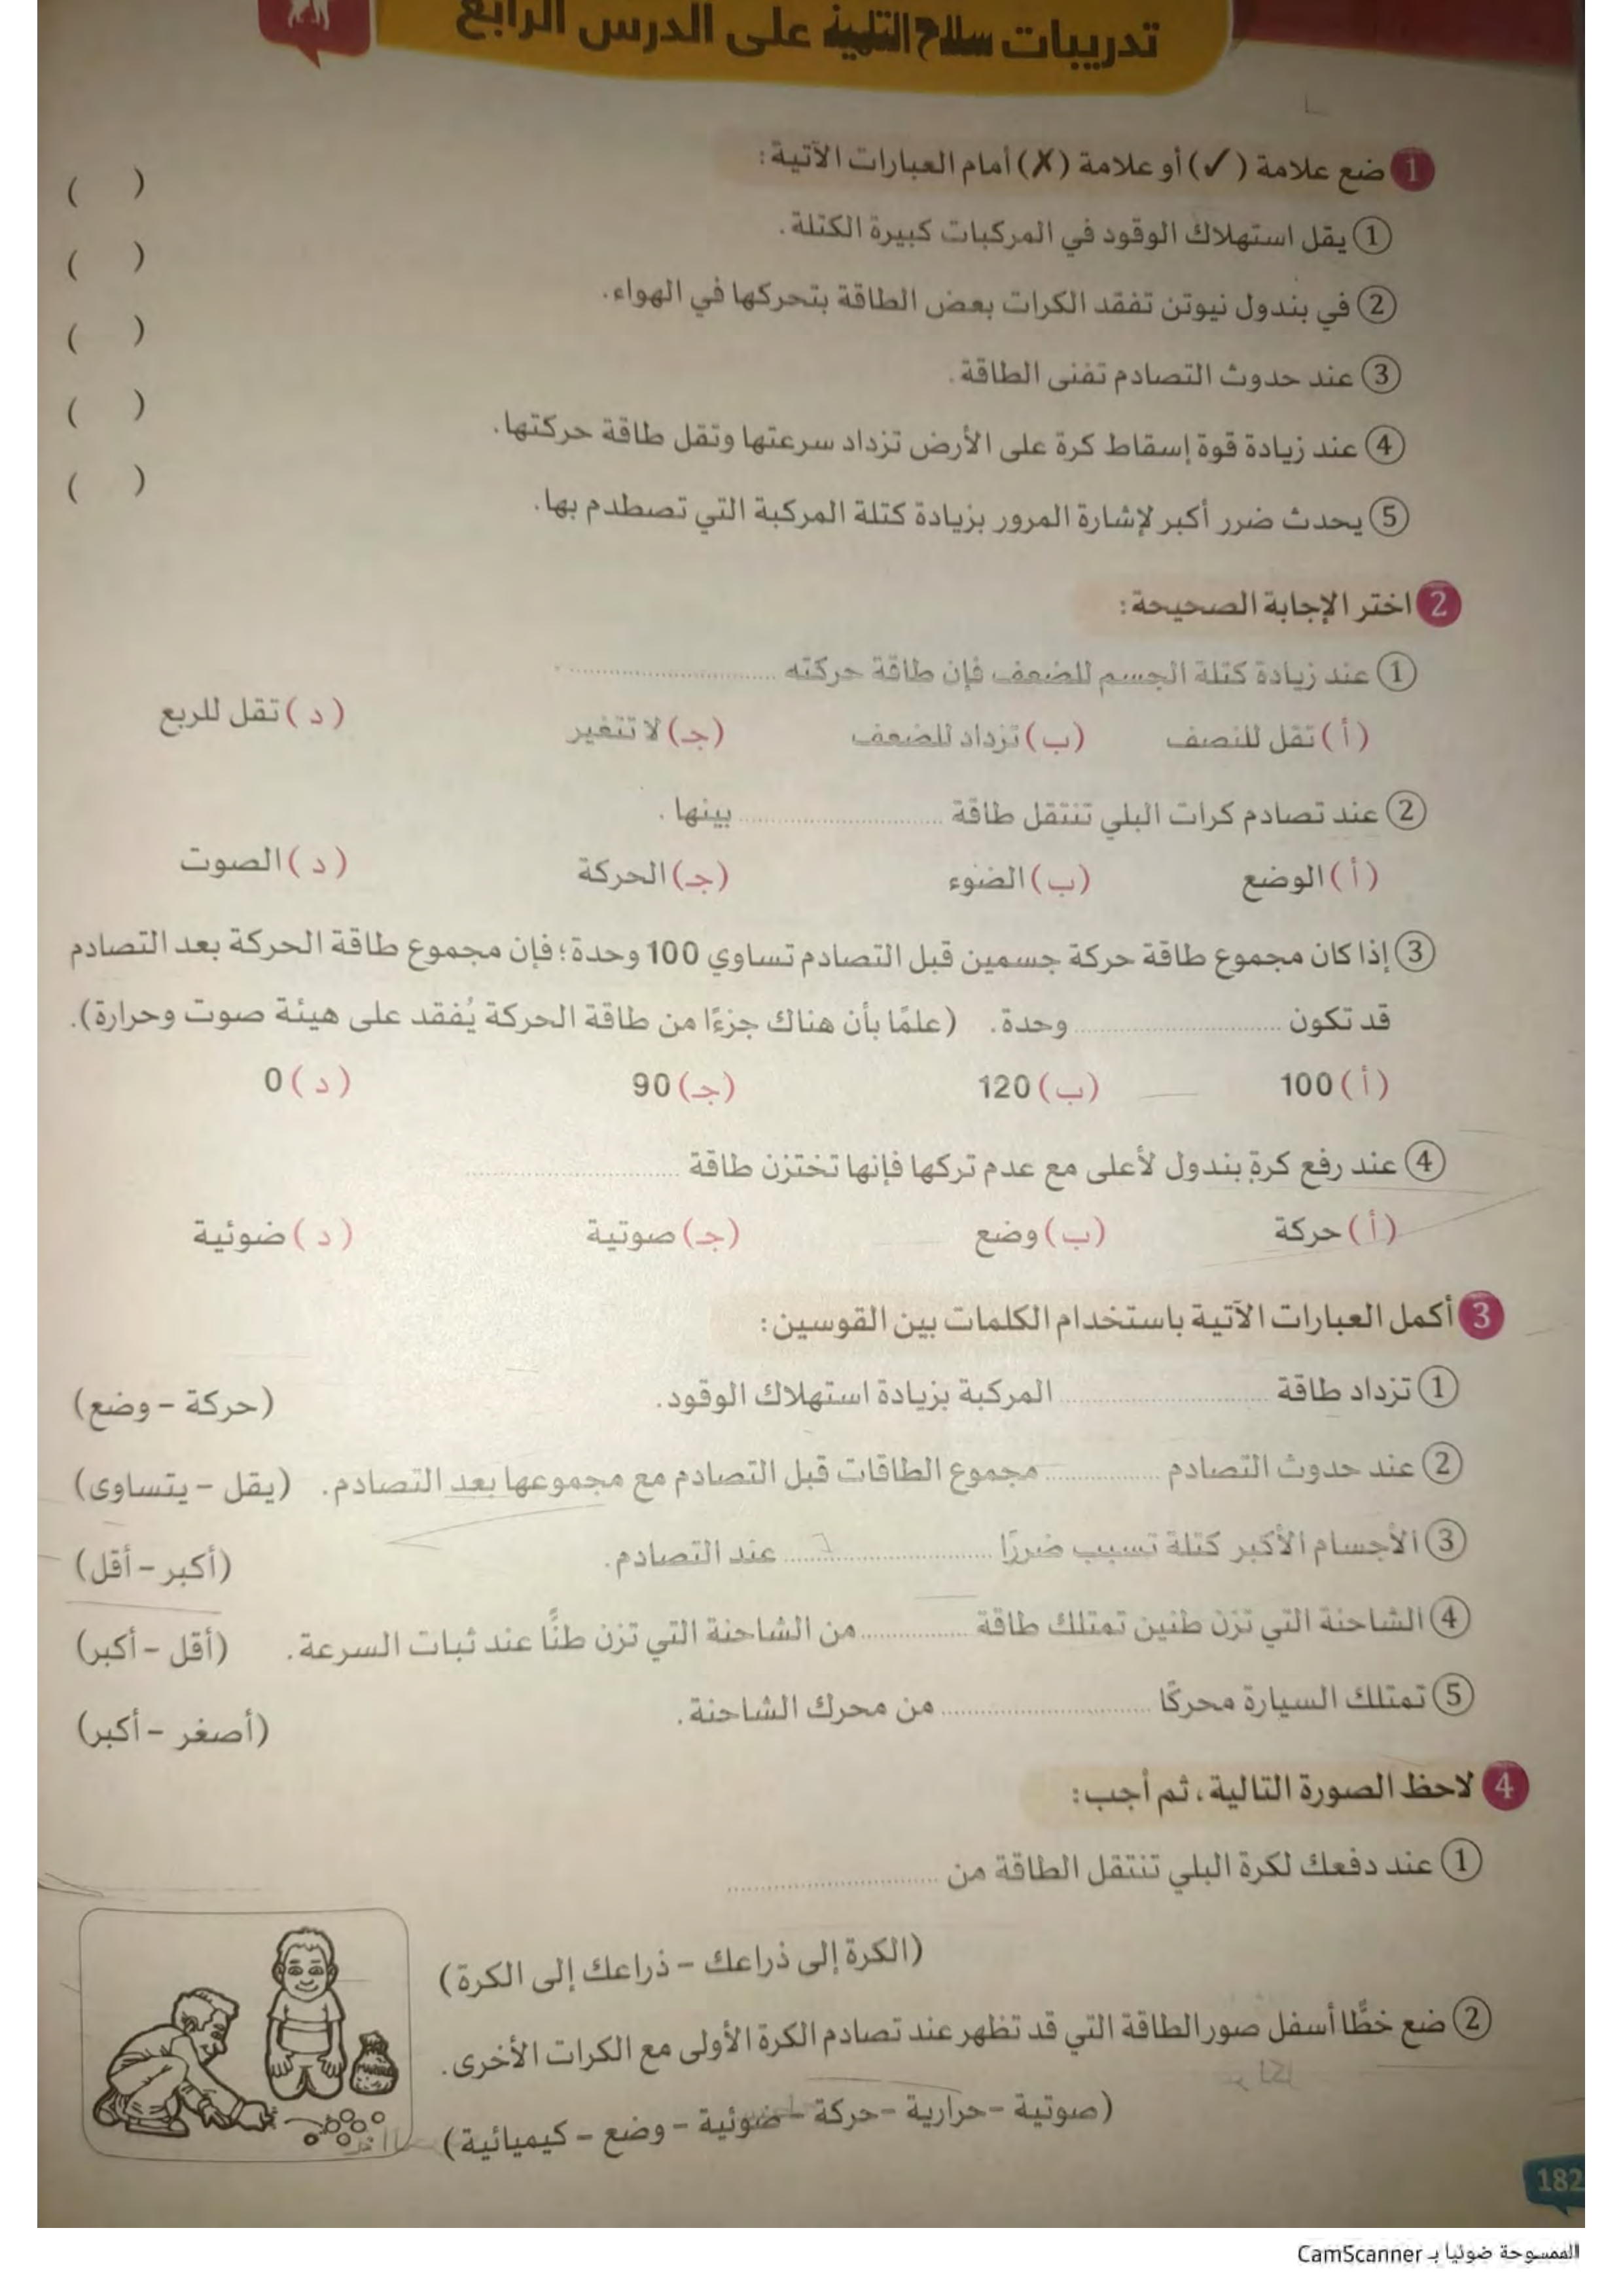 تدريبات سلاح التلميذ على الدرس الرابع
1 ضع علامة (✓) أو علامة (✗) أمام العبارات الآتية:
1 يقل استهلاك الوقود في المركبات كبيرة الكتلة. ( )
2 في بندول نيوتن تفقد الكرات بعض الطاقة بتحركها في الهواء. ( )
3 عند حدوث التصادم تفنى الطاقة. ( )
4 عند زيادة قوة إسقاط كرة على الأرض تزداد سرعتها وتقل طاقة حركتها. ( )
5 يحدث ضرر أكبر لإشارة المرور بزيادة كتلة المركبة التي تصطدم بها. ( )
2 اختر الإجابة الصحيحة:
1 عند زيادة كتلة الجسم للضعف فإن طاقة حركته ............................ .
(أ) تقل للنصف (ب) تزداد للضعف (جـ) لا تتغير (د) تقل للربع
2 عند تصادم كرات البلي تنتقل طاقة ............................ بينها.
(أ) الوضع (ب) الضوء (جـ) الحركة (د) الصوت
3 إذا كان مجموع طاقة حركة جسمين قبل التصادم تساوي 100 وحدة؛ فإن مجموع طاقة الحركة بعد التصادم
قد تكون ............................ وحدة. (علمًا بأن هناك جزءًا من طاقة الحركة يُفقد على هيئة صوت وحرارة).
(أ) 100 (ب) 120 (جـ) 90 (د) 0
4 عند رفع كرة بندول لأعلى مع عدم تركها فإنها تختزن طاقة ............................
(أ) حركة (ب) وضع (جـ) صوتية (د) ضوئية
3 أكمل العبارات الآتية باستخدام الكلمات بين القوسين:
1 تزداد طاقة ............................ المركبة بزيادة استهلاك الوقود. (حركة - وضع)
2 عند حدوث التصادم ................ مجموع الطاقات قبل التصادم مع مجموعها بعد التصادم. (يقل - يتساوى)
3 الأجسام الأكبر كتلة تسبب ضررًا ............................ عند التصادم. (أكبر - أقل)
4 الشاحنة التي تزن طنين تمتلك طاقة ............... من الشاحنة التي تزن طنًّا عند ثبات السرعة. (أقل - أكبر)
5 تمتلك السيارة محركًا ............................ من محرك الشاحنة. (أصغر - أكبر)
4 لاحظ الصورة التالية، ثم أجب:
1 عند دفعك لكرة البلي تنتقل الطاقة من ............................
(الكرة إلى ذراعك - ذراعك إلى الكرة)
2 ضع خطًّا أسفل صور الطاقة التي قد تظهر عند تصادم الكرة الأولى مع الكرات الأخرى.
(صوتية - حرارية - حركة - ضوئية - وضع - كيميائية)
182
الممسوحة ضوئيا بـ CamScanner